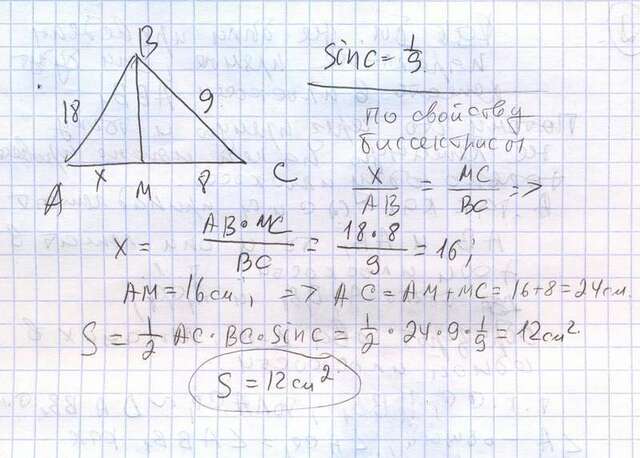 B
sin C = 1/9
18
9
A
x
M
8
C
по свойству
биссектрисы
x/AB = MC/BC =>
x = AB•MC/BC = 18•8/9 = 16;
AM = 16 см; => AC = AM + MC = 16 + 8 = 24 см.
S = 1/2 AC • BC • sin C = 1/2 • 24 • 9 • 1/9 = 12 см²
S = 12 см²